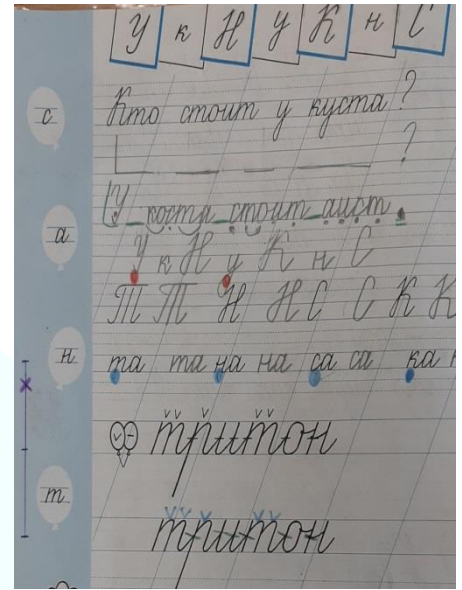 У к Н у К н С
с
Кто стоит у куста ?
?
У коста стоит аист.
а
У к Н у К н С
Т Т Н Н С С К К
н
та та на на са са ка
тритон
т
тритон